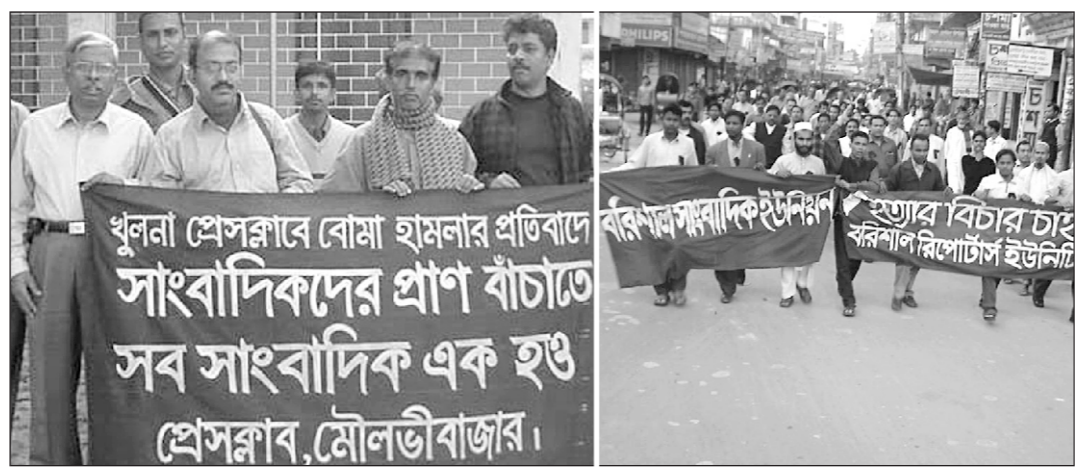 খুলনা প্রেসক্লাবে বোমা হামলার প্রতিবাদে
সাংবাদিকদের প্রাণ বাঁচাতে
সব সাংবাদিক এক হও
প্রেসক্লাব, মৌলভীবাজার।
PHILIPS
বরিশাল সাংবাদিক ইউনিয়ন
হত্যার বিচার চাই
বরিশাল রিপোর্টার্স ইউনিটি